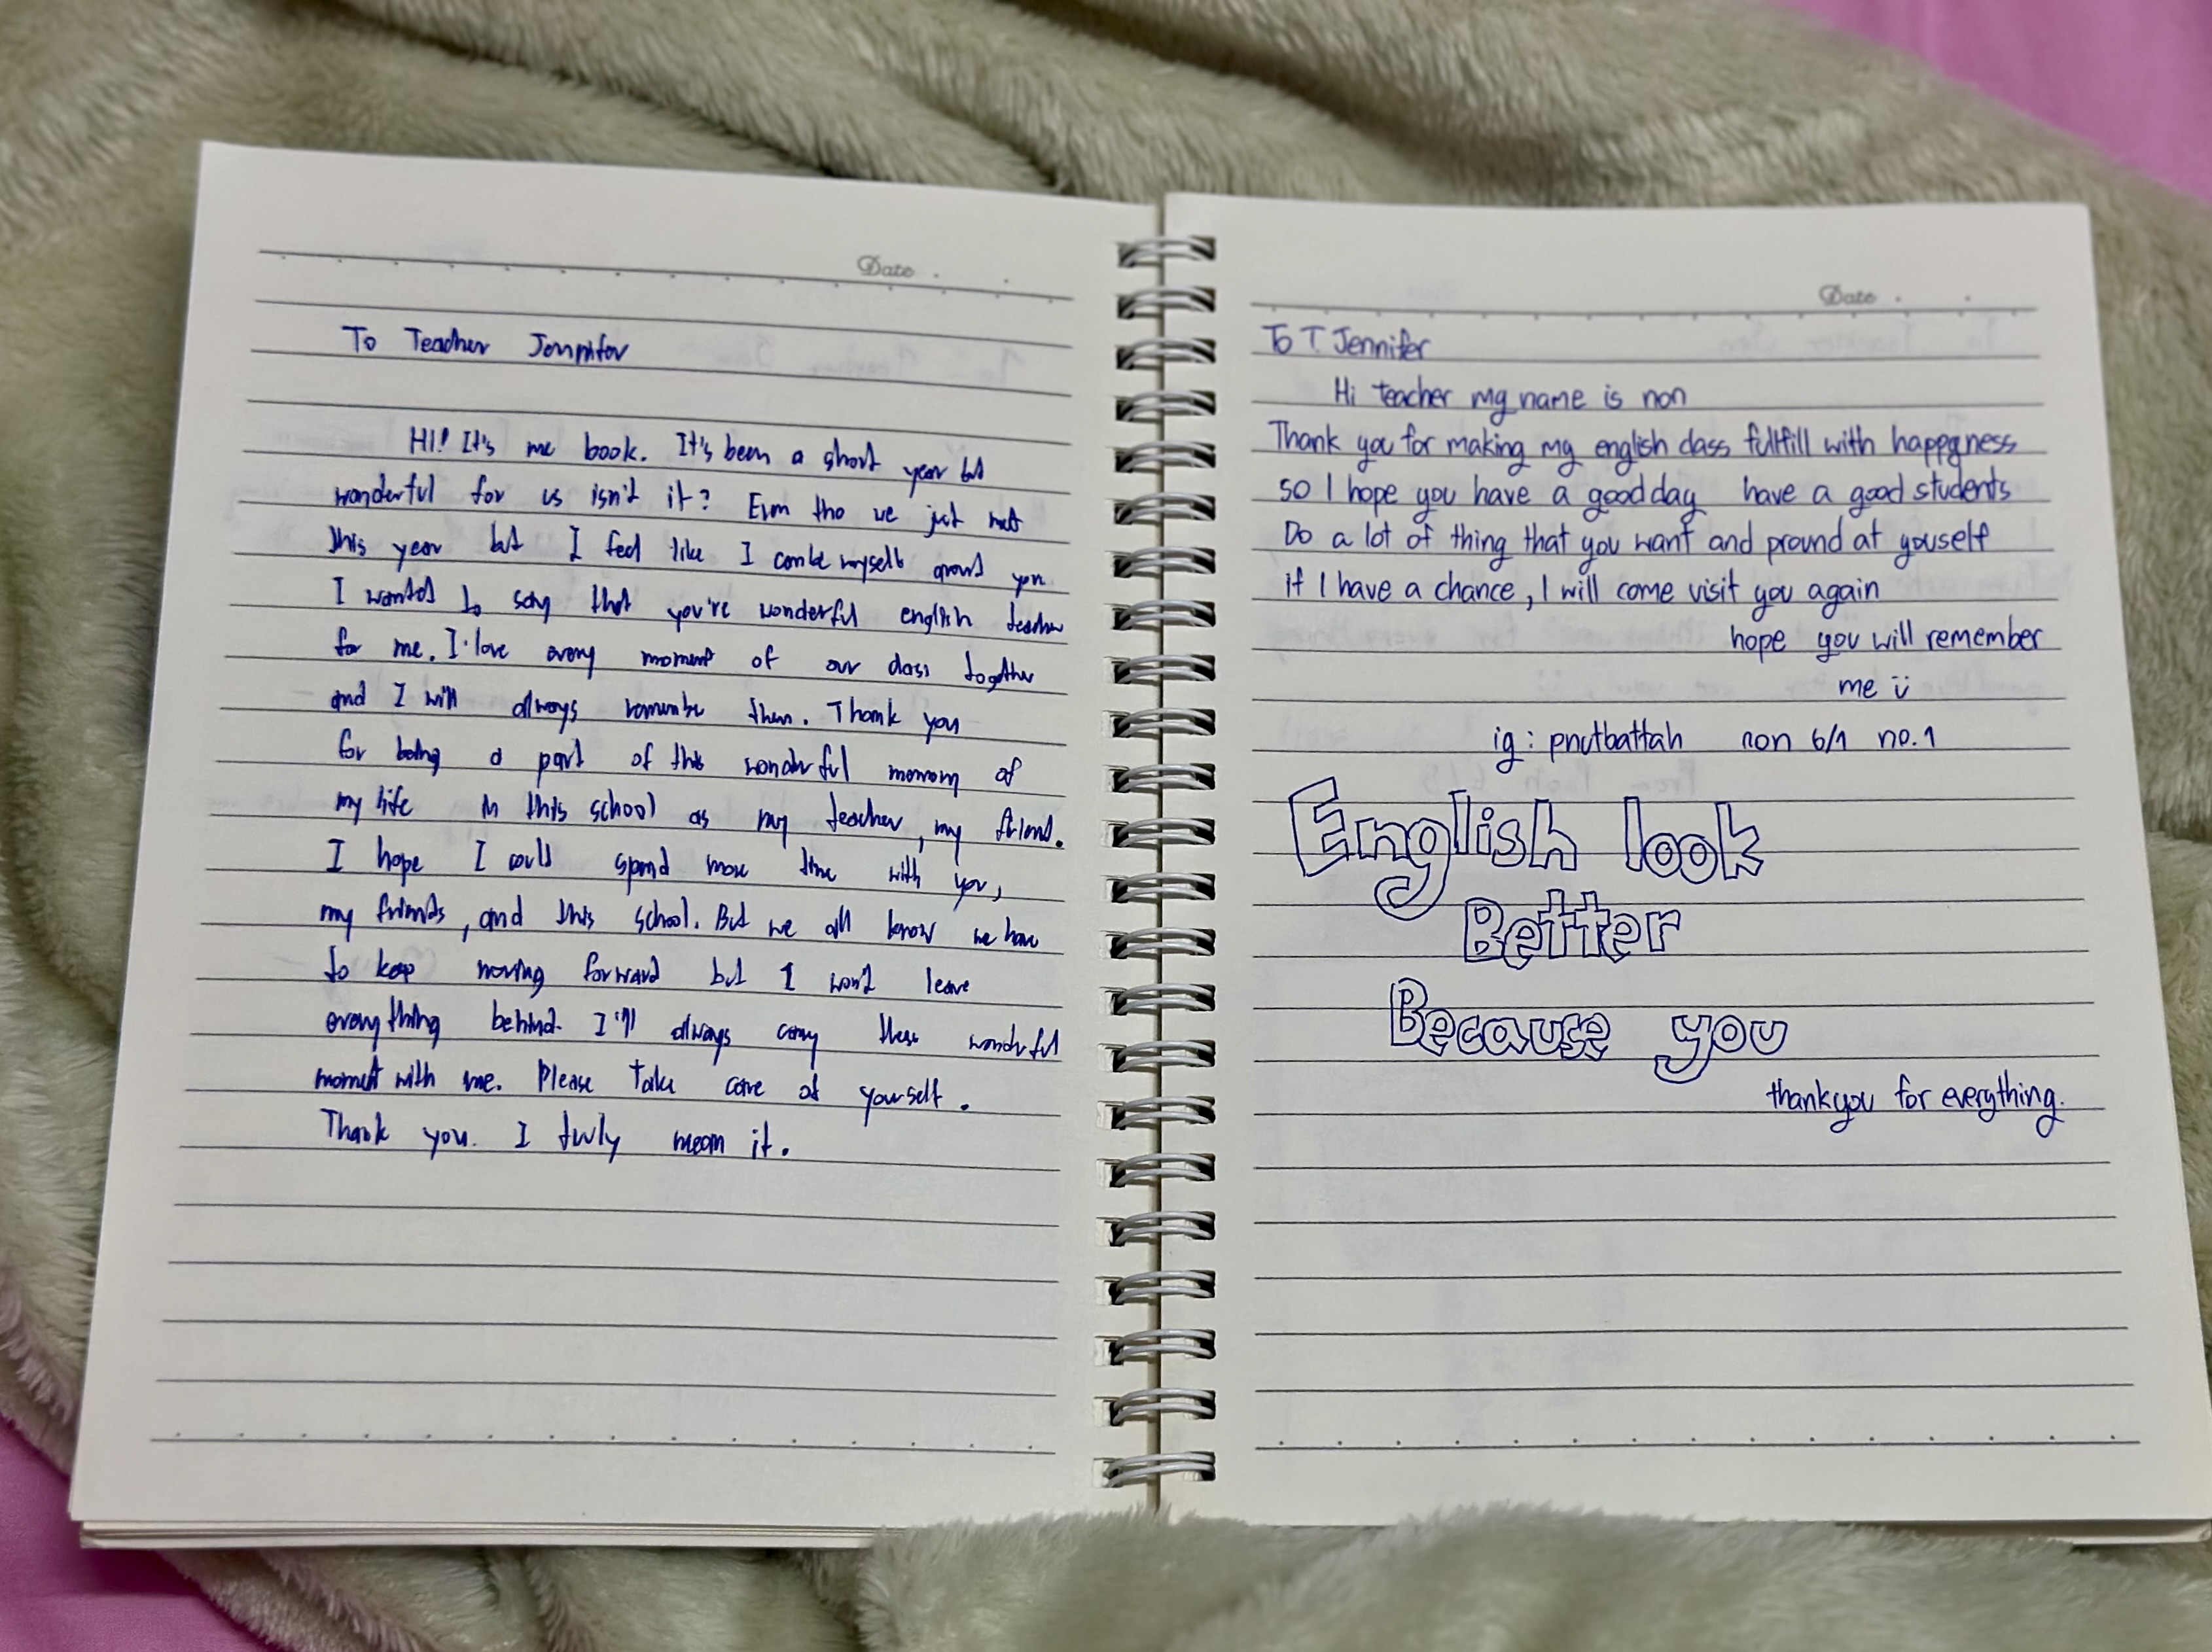 Date
To Teacher Jennifer
HI! It's me book. It's been a short year but
wonderful for us isn't it? Even tho we just met
this year but I feel like I can be myself around you
I wanted to say that you're wonderful english teacher
for me. I love every moment of our class together
and I will always remember them. Thank you
for being a part of this wonderful memory of
my life in this school as my teacher, my friend.
I hope I could spend more time with you,
my friends, and this school. But we all know we have
to keep moving forward but I won't leave
everything behind. I'll always carry these wonderful
moment with me. Please take care of yourself.
Thank you. I truly mean it.
Date
To T. Jennifer
Hi teacher my name is non
Thank you for making my english class fullfill with happyness
so I hope you have a good day have a good students
Do a lot of thing that you want and pround at youself
if I have a chance, I will come visit you again
hope you will remember
me ü
ig: pnutbattah non 6/1 no.1
English look
Better
Because you
thankyou for everything.